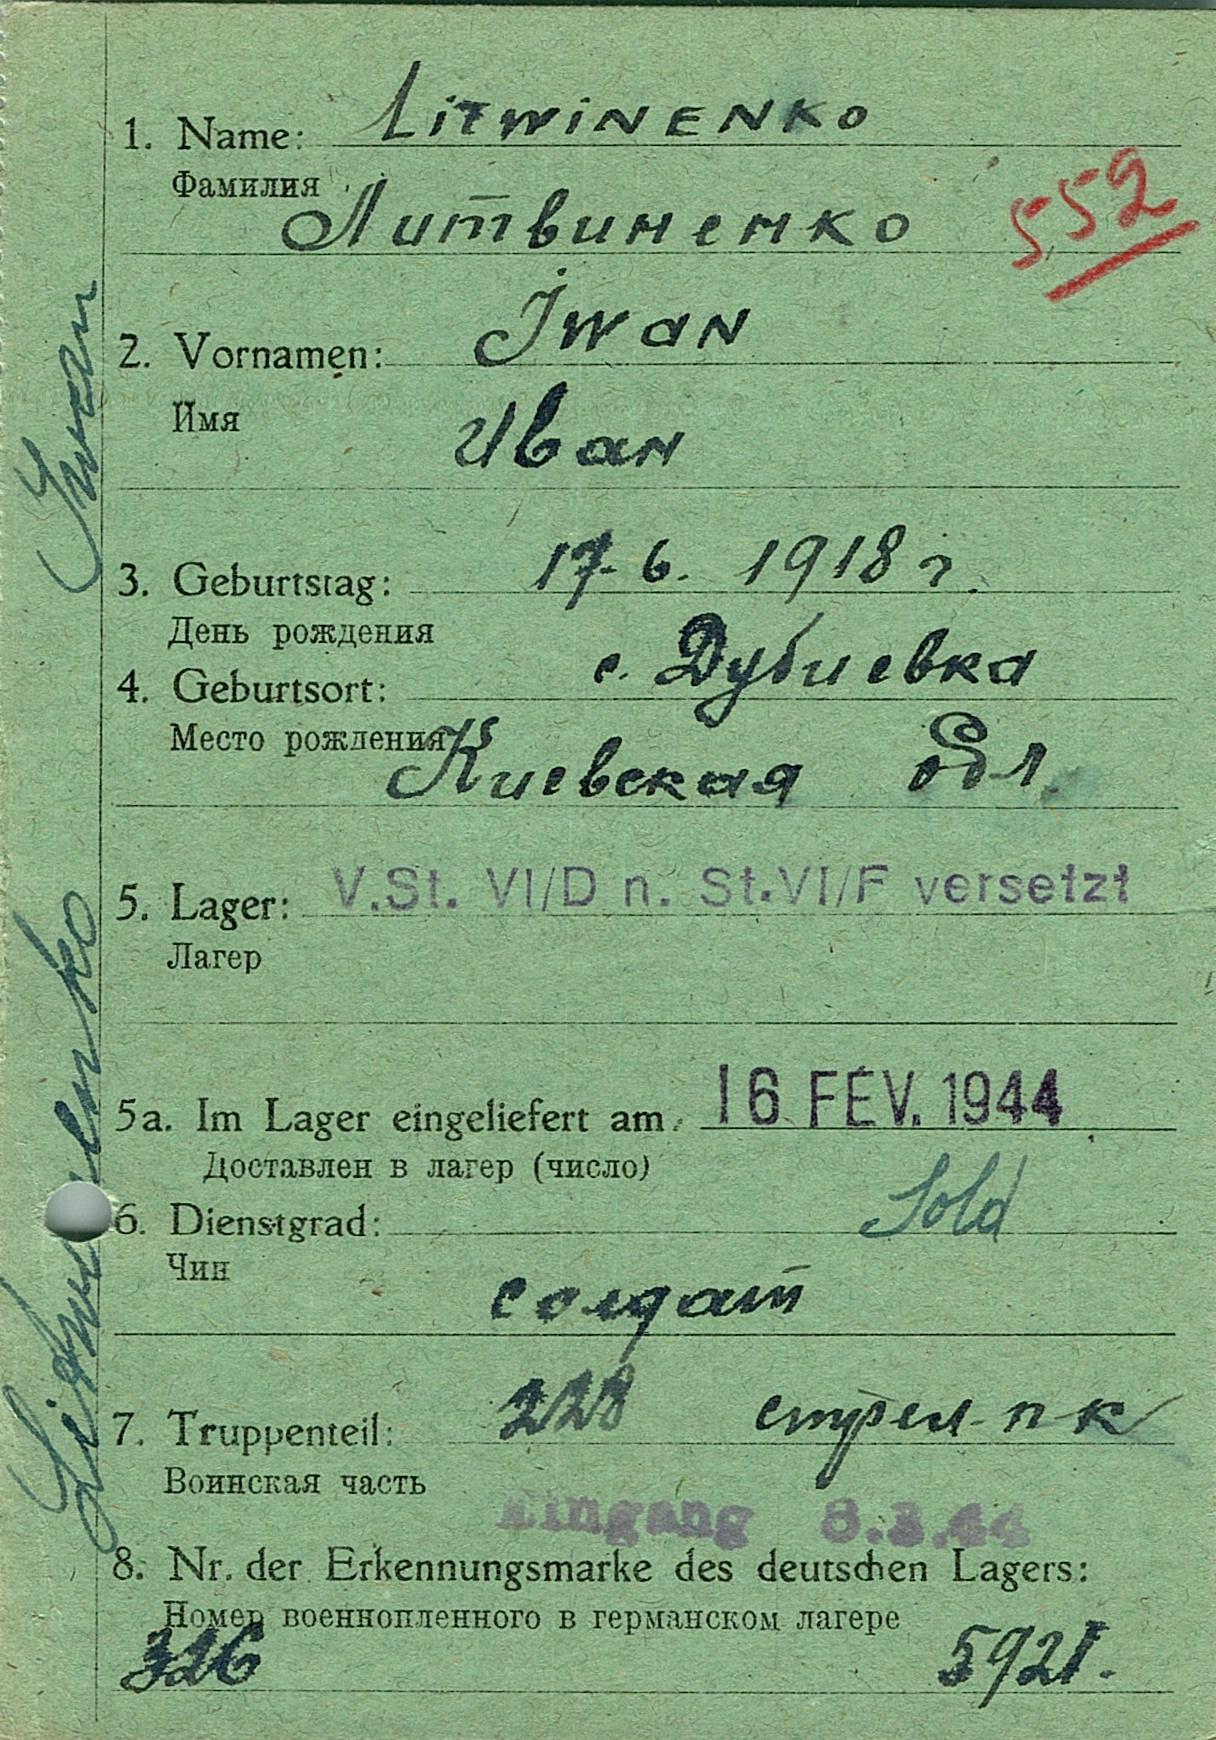 1. Name: LiTWiNENKo
Фамилия
Литвиненко
552
2. Vornamen: JwaN
Имя
Иван
3. Geburtstag: 17. 6. 1918 г.
День рождения
4. Geburtsort: с. Дубиевка
Место рождения Киевская обл.
5. Lager: V.St. VI/D n. St.VI/F versetzt
Лагер
5a. Im Lager eingeliefert am 16 FÉV. 1944
Доставлен в лагер (число)
6. Dienstgrad: Sold
Чин
солдат
7. Truppenteil: 228 стрел-п-к
Воинская часть
Eingang 8.3.44
8. Nr. der Erkennungsmarke des deutschen Lagers:
Номер военнопленного в германском лагере
326 5921.
Litwinenko Iwan